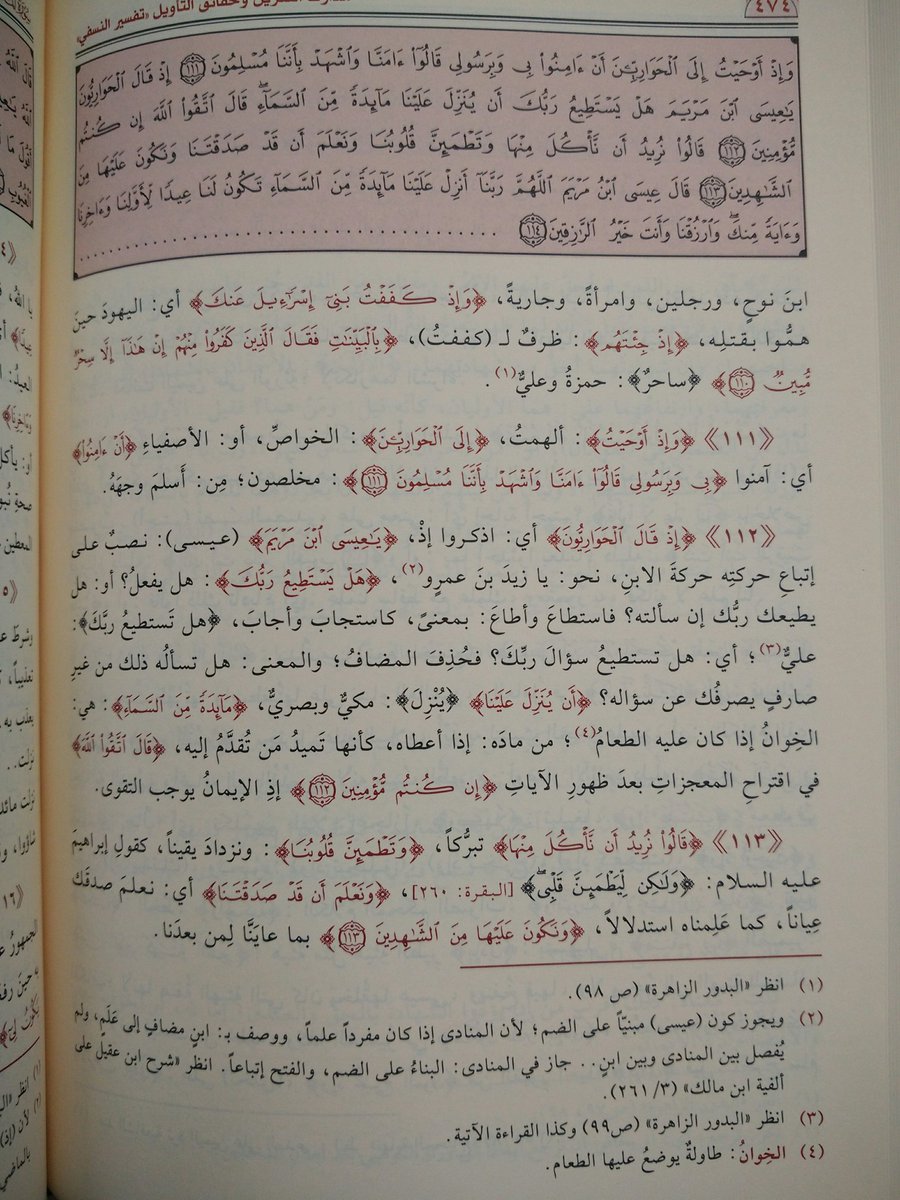 ٤٧٤
مدارك التنزيل وحقائق التأويل «تفسير النسفي»
وَإِذْ أَوْحَيْتُ إِلَى الْحَوَارِيِّـۧنَ أَنْ ءَامِنُوا۟ بِى وَبِرَسُولِى قَالُوٓا۟ ءَامَنَّا وَٱشْهَدْ بِأَنَّنَا مُسْلِمُونَ ﴿١١١﴾ إِذْ قَالَ ٱلْحَوَارِيُّونَ
يَـٰعِيسَى ٱبْنَ مَرْيَمَ هَلْ يَسْتَطِيعُ رَبُّكَ أَن يُنَزِّلَ عَلَيْنَا مَآئِدَةً مِّنَ ٱلسَّمَآءِ ۖ قَالَ ٱتَّقُوا۟ ٱللَّهَ إِن كُنتُم
مُّؤْمِنِينَ ﴿١١٢﴾ قَالُوا۟ نُرِيدُ أَن نَّأْكُلَ مِنْهَا وَتَطْمَئِنَّ قُلُوبُنَا وَنَعْلَمَ أَن قَدْ صَدَقْتَنَا وَنَكُونَ عَلَيْهَا مِنَ
ٱلشَّـٰهِدِينَ ﴿١١٣﴾ قَالَ عِيسَى ٱبْنُ مَرْيَمَ ٱللَّهُمَّ رَبَّنَآ أَنزِلْ عَلَيْنَا مَآئِدَةً مِّنَ ٱلسَّمَآءِ تَكُونُ لَنَا عِيدًا لِّأَوَّلِنَا وَءَاخِرِنَا
وَءَايَةً مِّنكَ ۖ وَٱرْزُقْنَا وَأَنتَ خَيْرُ ٱلرَّٰزِقِينَ ﴿١١٤﴾ ........................................
ابنَ نوحٍ، ورجلين، وامرأةً، وجاريةً، ﴿وَإِذْ كَفَفْتُ بَنِىٓ إِسْرَٰٓءِيلَ عَنكَ﴾ أي: اليهودَ حينَ
همُّوا بقتلِه، ﴿إِذْ جِئْتَهُم﴾: ظرفٌ لـ (كففتُ)، ﴿بِٱلْبَيِّنَـٰتِ فَقَالَ ٱلَّذِينَ كَفَرُوا۟ مِنْهُمْ إِنْ هَـٰذَآ إِلَّا سِحْرٌ
مُّبِينٌ ﴿١١٠﴾﴾ ﴿ساحرٌ﴾: حمزةُ وعليٌّ(١).
﴿١١١﴾ ﴿وَإِذْ أَوْحَيْتُ﴾: ألهمتُ، ﴿إِلَى ٱلْحَوَارِيِّـۧنَ﴾: الخواصِّ، أو: الأصفياءِ ﴿أَنْ ءَامِنُوا۟﴾
أي: آمنوا ﴿بِى وَبِرَسُولِى قَالُوٓا۟ ءَامَنَّا وَٱشْهَدْ بِأَنَّنَا مُسْلِمُونَ ﴿١١١﴾﴾: مخلصون؛ مِن: أَسلمَ وجهَهُ.
﴿١١٢﴾ ﴿إِذْ قَالَ ٱلْحَوَارِيُّونَ﴾ أي: اذكروا إذْ، ﴿يَـٰعِيسَى ٱبْنَ مَرْيَمَ﴾ (عيسى): نصبٌ على
إتباعِ حركتِه حركةَ الابنِ، نحو: يا زيدَ بنَ عمرٍو(٢)، ﴿هَلْ يَسْتَطِيعُ رَبُّكَ﴾: هل يفعلُ؟ أو: هل
يطيعك ربُّك إن سألته؟ فاستطاعَ وأطاعَ: بمعنىً، كاستجابَ وأجابَ، ﴿هل تَستطيعُ ربَّكَ﴾:
عليٌّ(٣)؛ أي: هل تستطيعُ سؤالَ ربِّكَ؟ فحُذِفَ المضافُ؛ والمعنى: هل تسألُه ذلك من غيرِ
صارفٍ يصرفُك عن سؤاله؟ ﴿أَن يُنَزِّلَ عَلَيْنَا﴾ ﴿يُنْزِلَ﴾: مكيٌّ وبصريٌّ، ﴿مَآئِدَةً مِّنَ ٱلسَّمَآءِ﴾: هي:
الخِوانُ إذا كان عليه الطعامُ(٤)؛ من مادَه: إذا أعطاه، كأنها تَميدُ مَن تُقدَّمُ إليه، ﴿قَالَ ٱتَّقُوا۟ ٱللَّهَ﴾
في اقتراحِ المعجزاتِ بعدَ ظهورِ الآياتِ ﴿إِن كُنتُم مُّؤْمِنِينَ ﴿١١٢﴾﴾ إذِ الإيمانُ يوجب التقوى.
﴿١١٣﴾ ﴿قَالُوا۟ نُرِيدُ أَن نَّأْكُلَ مِنْهَا﴾ تبرُّكاً، ﴿وَتَطْمَئِنَّ قُلُوبُنَا﴾: ونزدادَ يقيناً، كقولِ إبراهيمَ
عليه السلام: ﴿وَلَـٰكِن لِّيَطْمَئِنَّ قَلْبِى ۖ﴾ [البقرة: ٢٦٠]، ﴿وَنَعْلَمَ أَن قَدْ صَدَقْتَنَا﴾ أي: نعلمَ صدقَك
عِياناً، كما عَلِمناه استدلالاً، ﴿وَنَكُونَ عَلَيْهَا مِنَ ٱلشَّـٰهِدِينَ ﴿١١٣﴾﴾ بما عايَنَّا لِمن بعدَنا.
(١) انظر «البدور الزاهرة» (ص ٩٨).
(٢) ويجوز كون (عيسى) مبنيّاً على الضم؛ لأن المنادى إذا كان مفرداً علماً، ووصف بـ: ابنٍ مضافٍ إلى عَلَمٍ، ولم
يُفصل بين المنادى وبين ابنٍ.. جاز في المنادى: البناءُ على الضم، والفتح إتباعاً. انظر «شرح ابن عقيل على
ألفية ابن مالك» (٢٦١/٣).
(٣) انظر «البدور الزاهرة» (ص٩٩) وكذا القراءة الآتية.
(٤) الخِوانُ: طاولةٌ يوضعُ عليها الطعام.